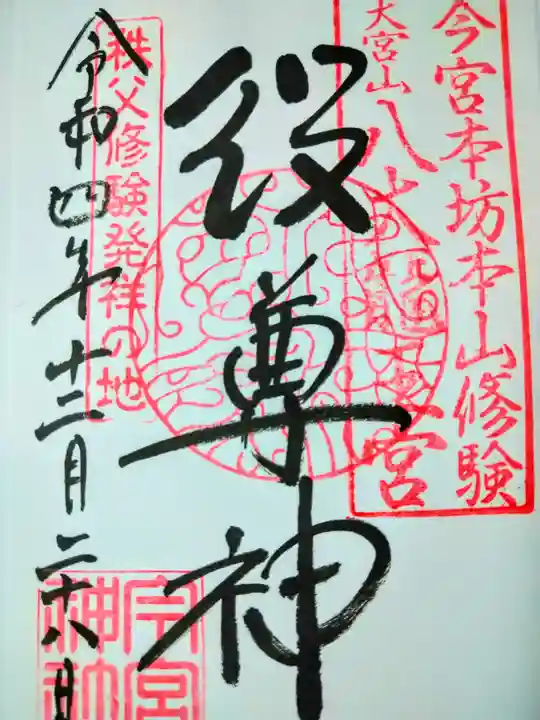 今宮本坊本山修験
大宮山八
宮
役尊神
秩父修験発祥の地
令和四年十二月二十八日
今宮
神社